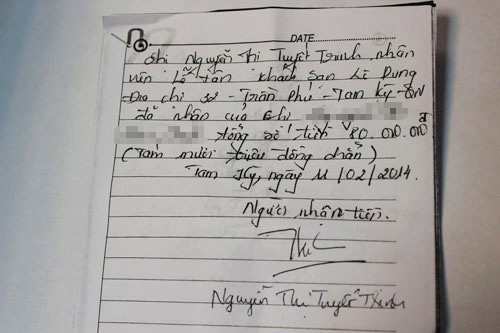 DATE
Chi Nguyễn Thi Tuyết Trinh, nhân
viên Lễ tân khách sạn Lê Dung
Đia chi 32 - Trần Phú - Tam Kỳ - QN
đã nhân của chi
tổng số tiền 80.000.000đ
(Tám mười triệu đồng chẵn)
Tam Kỳ, ngày 11/02/2014.
Người nhân tiền.
Nguyễn Thi Tuyết Trinh